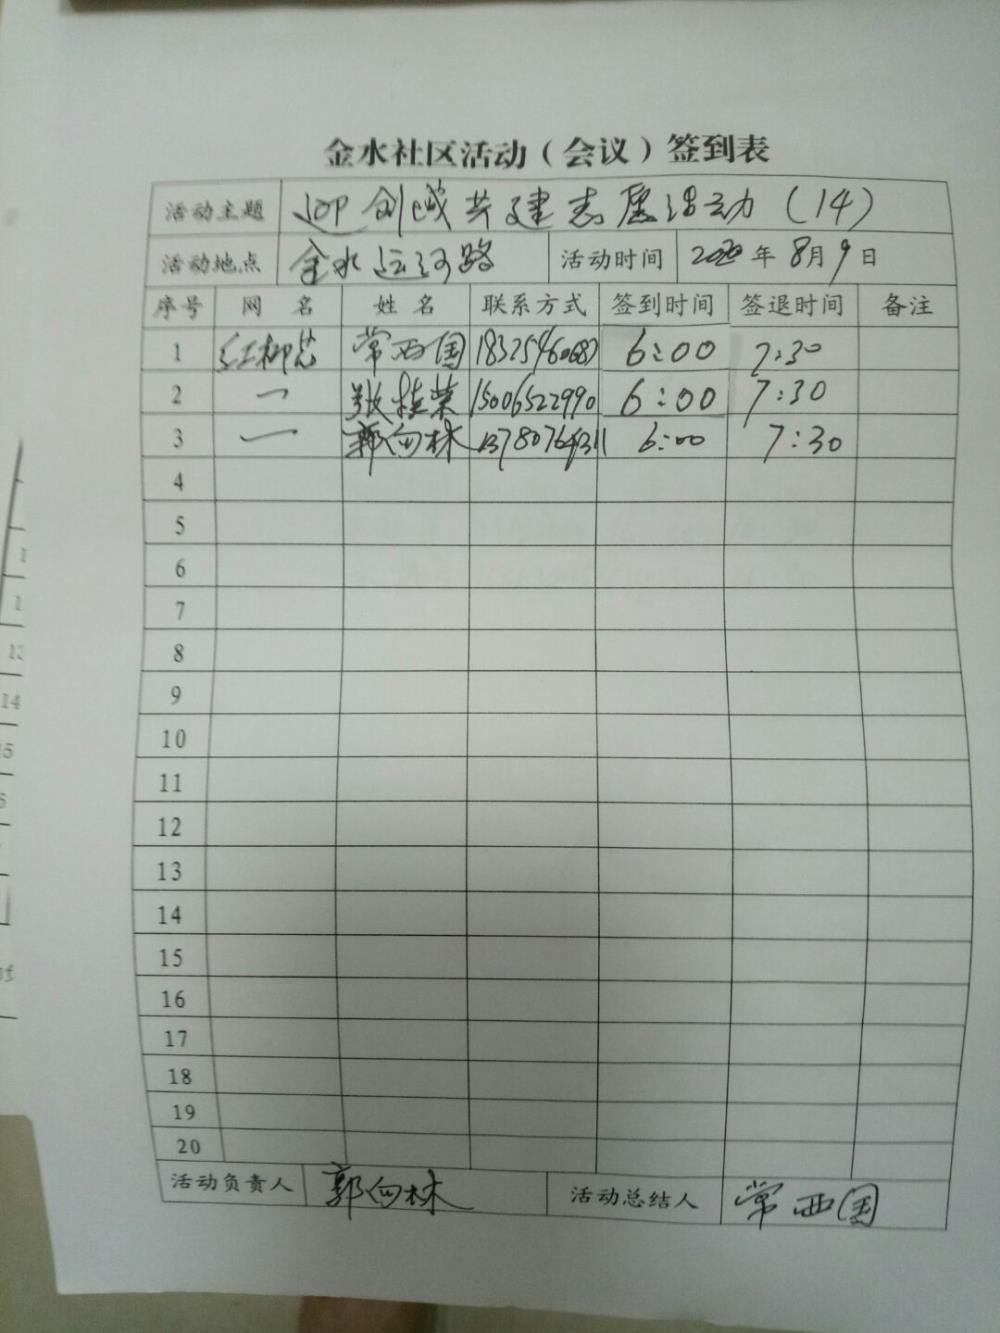 金水社区活动（会议）签到表
活动主题 迎创城共建志愿活动（14）
活动地点 金水运河路 活动时间 2020年8月9日
序号 网名 姓名 联系方式 签到时间 签退时间 备注
1 红柳芯 常西国 6:00 7:30
2 一 张桂荣 15006522990 6:00 7:30
3 一 郭向林 6:00 7:30
4
5
6
7
8
9
10
11
12
13
14
15
16
17
18
19
20
活动负责人 郭向林 活动总结人 常西国